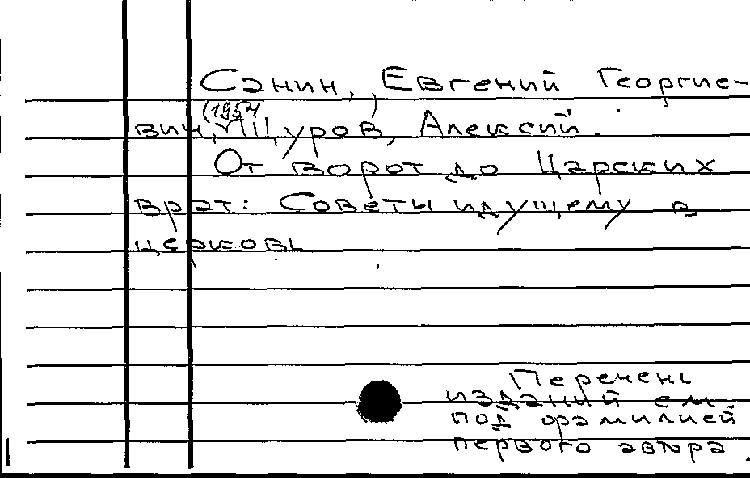 Санин, Евгений Георгие-
(1954 )
вич, Щуров, Алексий.
От ворот до Царских
врат: Советы идущему в
церковь
Перечень
изданий см.
под фамилией
первого автора.